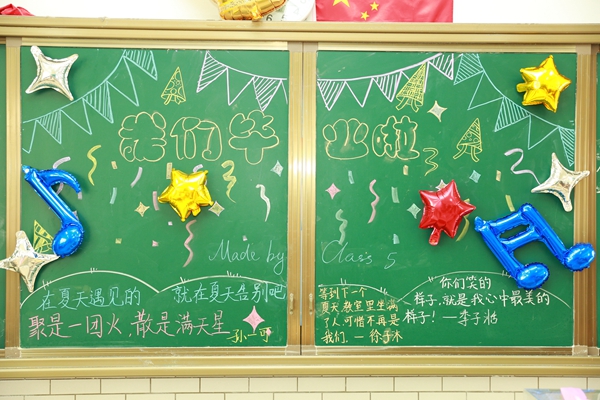 我们毕业啦
Made by Class 5
在夏天遇见的 就在夏天告别吧
聚是一团火,散是满天星
孙一可
等到下一个
夏天,教室里坐满
了人,可惜不再是
我们. — 徐子沐
你们笑的
样子,就是我心中最美的
样子! —李子